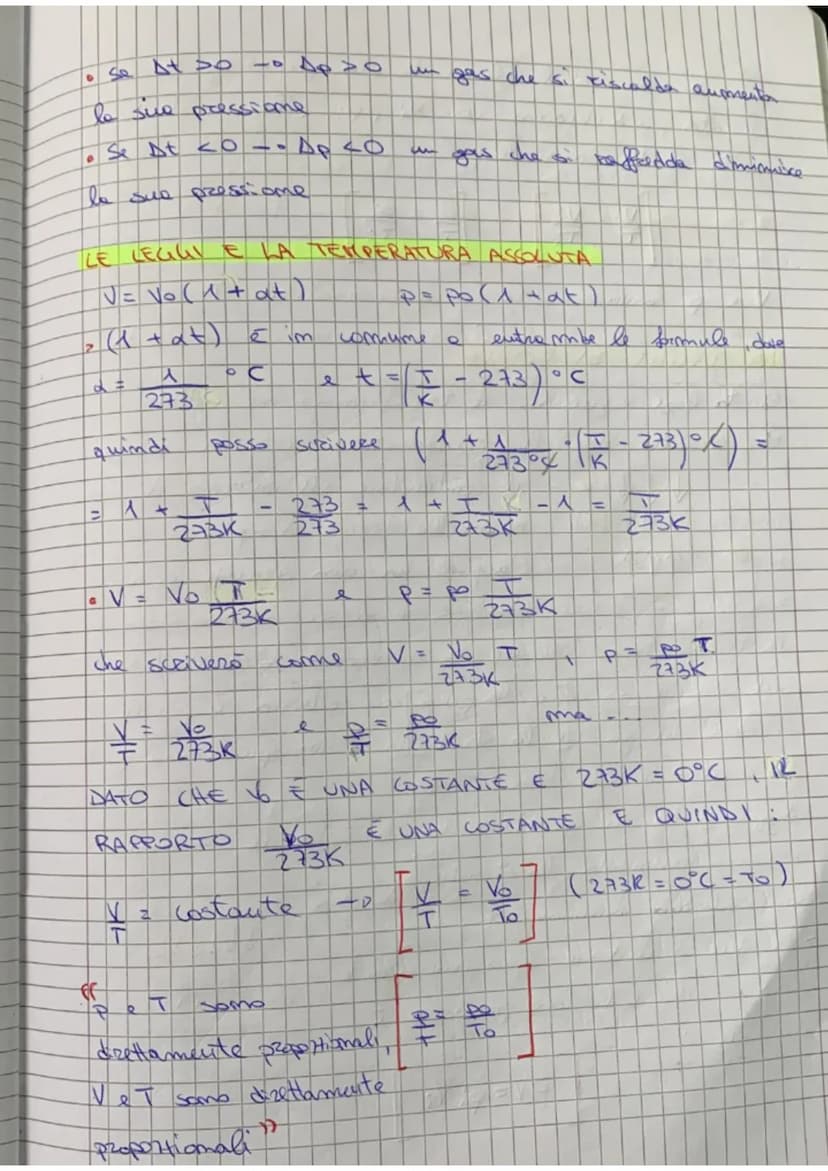 • Se Δt >0 → Δp >0 un gas che si riscalda aumenta
la sua pressione
• Se Δt <0 → Δp <0 un gas che si raffredda diminuisce
la sua pressione
LE LEGGI E LA TEMPERATURA ASSOLUTA
V = V0 (1 + αt) p = p0 (1 + αt)
> (1 + αt) È in comune a entrambe le formule, dove
α = 1/273 °C e t = (T/K - 273) °C
quindi posso scrivere (1 + 1/273°C · (T/K - 273)°C) =
= 1 + T/273K - 273/273 = 1 + T/273K - 1 = T/273K
• V = V0 T/273K e p = p0 T/273K
che scriverò come V = V0/273K T , p = p0/273K T
V/T = V0/273K e p/T = p0/273K ma ...
DATO CHE V0 È UNA COSTANTE E 273K = 0°C , IL
RAPPORTO V0/273K È UNA COSTANTE E QUINDI :
V/T = costante → [V/T = V0/T0] (273K = 0°C = T0)
"p e T sono
direttamente proporzionali, [p/T = p0/T0]
V e T sono direttamente
proporzionali"